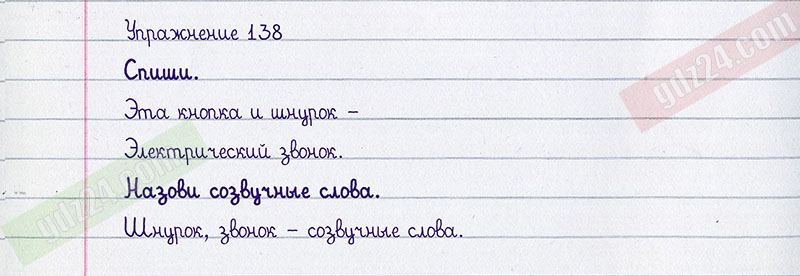 Упражнение 138
Спиши.
Эта кнопка и шнурок –
Электрический звонок.
Назови созвучные слова.
Шнурок, звонок – созвучные слова.
gdz24.com
gdz24.com